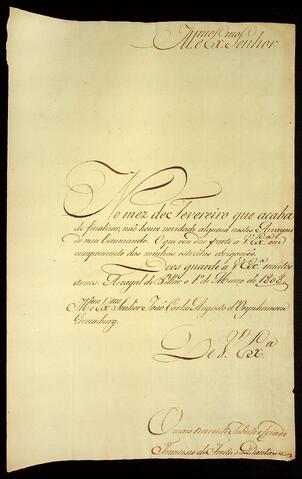 Illmo. e Exmo. Senhor
No mez de Fevereiro que acaba
de finalizar, não houve novidade alguma nestes Arrayaes
do meu Commando. O que vou dar parte a V. Exa. em
cumprimento das minhas estreitas obrigações.
Deos guarde a V. Exa. muitos
annos. Arrayal de Pillar o 1º de Marco de 1808.
Illmo. e Exmo. Senhor João Carlos Augusto d'Oeynhausen
Grevenburg.
De V. Exa.
O mais reverente Subdito e Criado
Francisco de Freitas Dantas